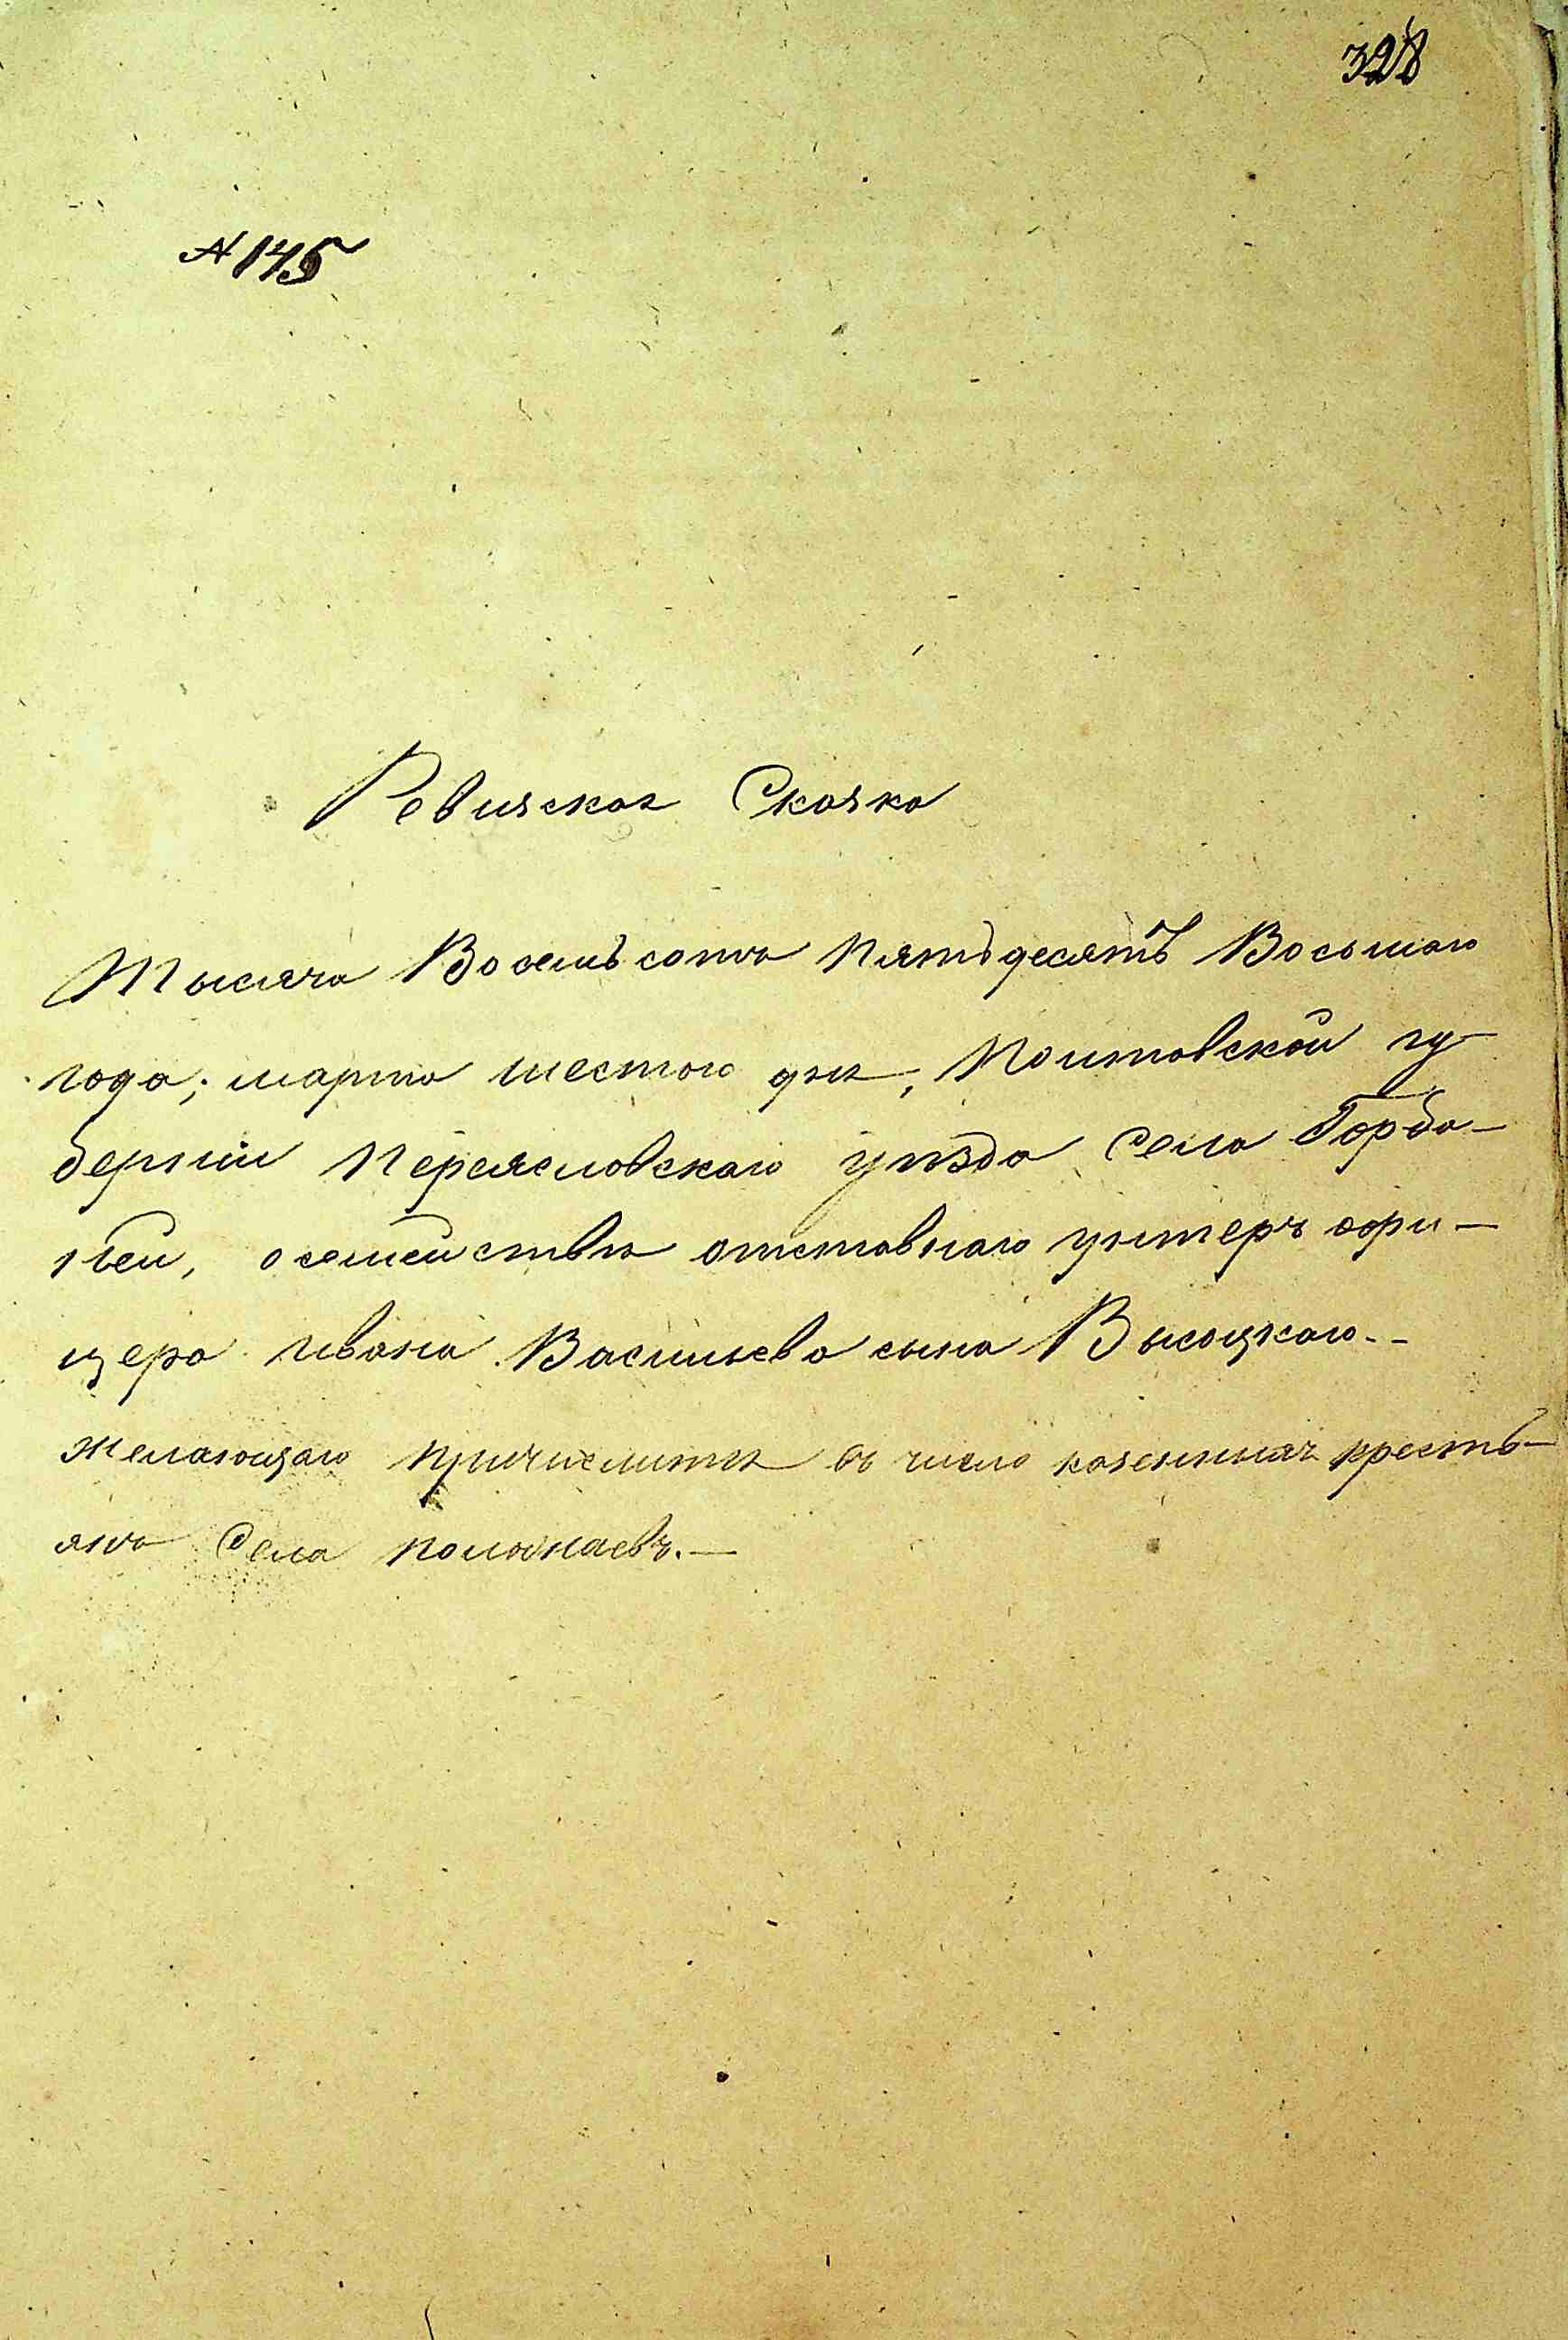 328
№ 145
Ревижская Сказка
Тысяча Восемьсотъ Пятьдесятъ Восьмаго
года, марта шестаго дня, Полтавской гу-
берніи Переяславскаго уѣзда Села Горба-
ней, о семействѣ отставнаго унтеръ офи-
цера Ивана Васильева сына Высоцкаго--
желающаго причислится въ число казенныхъ кресть-
янъ Села